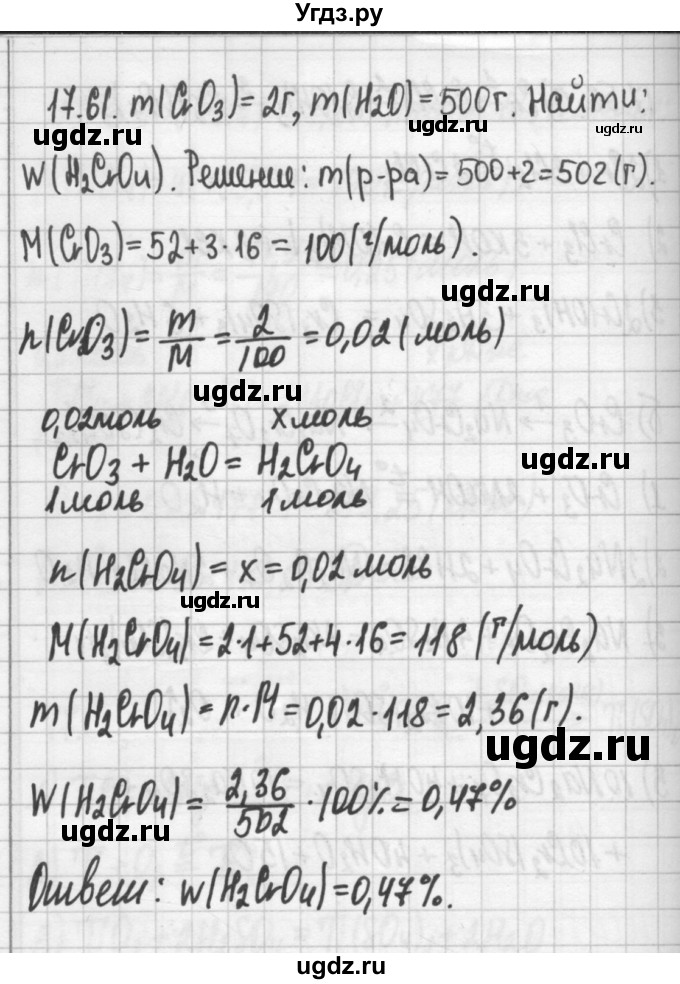 Угдз.ру
17.61. m(CrO3)=2г, m(H2O)=500г. Найти:
ugdz.ru ugdz.ru ugdz.ru
W(H2CrO4). Решение: m(р-ра)=500+2=502(г).
M(CrO3)=52+3·16=100(г/моль).
ugdz.ru
n(CrO3)=m/M=2/100=0,02(моль)
ugdz.ru
0,02моль x моль
CrO3+H2O=H2CrO4
ugdz.ru
1моль 1моль
n(H2CrO4)=x=0,02моль
ugdz.ru
M(H2CrO4)=2·1+52+4·16=118(г/моль)
m(H2CrO4)=n·M=0,02·118=2,36(г).
ugdz.ru
W(H2CrO4)=2,36/502·100%=0,47%
ugdz.ru
Ответ: W(H2CrO4)=0,47%.
ugdz.ru